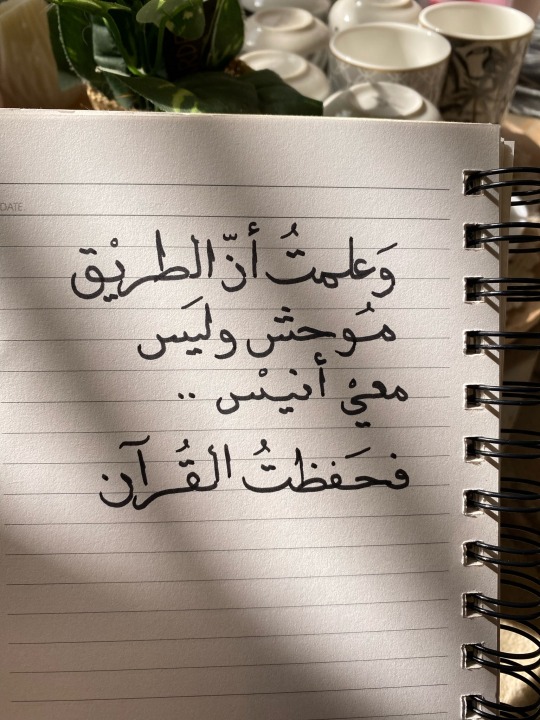 DATE
وَعلمتُ أنّ الطريْق
مُوحش وليَس
معيْ أنيْس ..
فحَفظتُ القُرآن